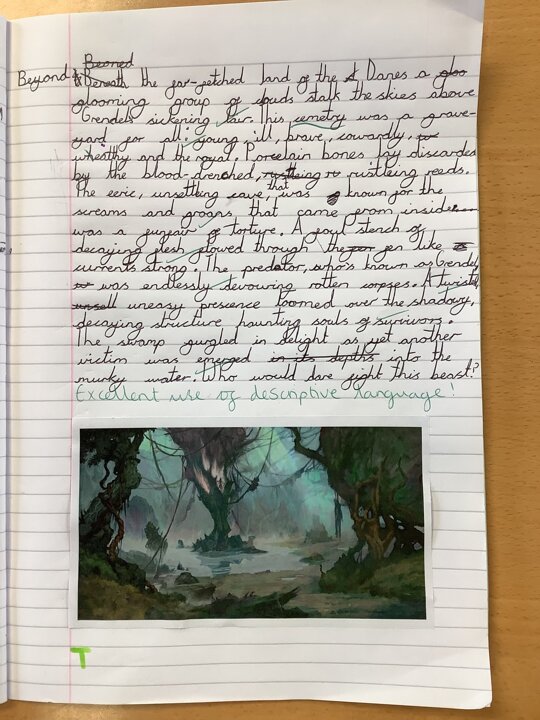 Beoned
Beyond Beneath the far-fetched land of the d Danes a gloo
glooming group of clouds stalk the skies above
Grendels sickening lair. This cemetry was a grave-
yard for all: young ill, brave, cowardly,
wheathy and the royal. Porcelain bones lay discarded
by the blood-drenched, rustleing reads.
The eeric, unsettling cave, that was known for the
screams and groans, that came from inside
was a funfair of torture. A foul stench of
decaying flesh flowed through the fen like
currents strong. The predator, who's known as Grendel,
was endlessly devouring rotten corpses. A twisted,
unsell uneasy presence loomed over the shadowy,
decaying structure haunting souls of survivors.
The swamp gurgled in delight as yet another
victim was emerged in its depths into the
murky water. Who would dare fight this beast?
Excellent use of descriptive language!
T